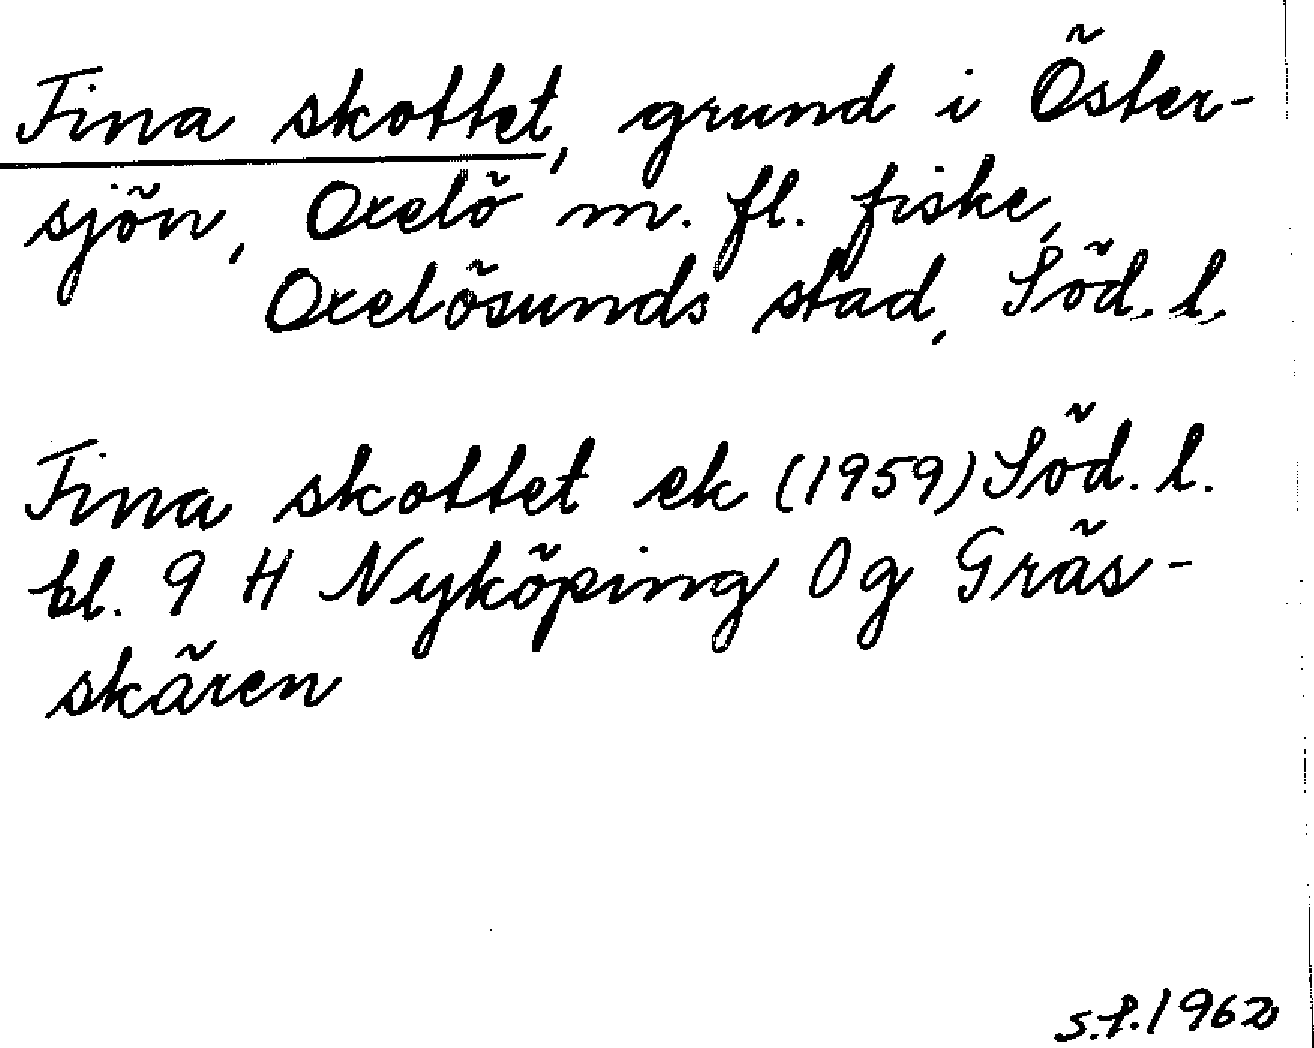 Fina skottet, grund i Öster-
sjön, Oxelö m. fl. fiske,
Oxelösunds stad, Söd. l.
Fina skottet ek (1959) Söd. l.
bl. 9 H Nyköping 0g Gräs-
skären
s.f. 1962